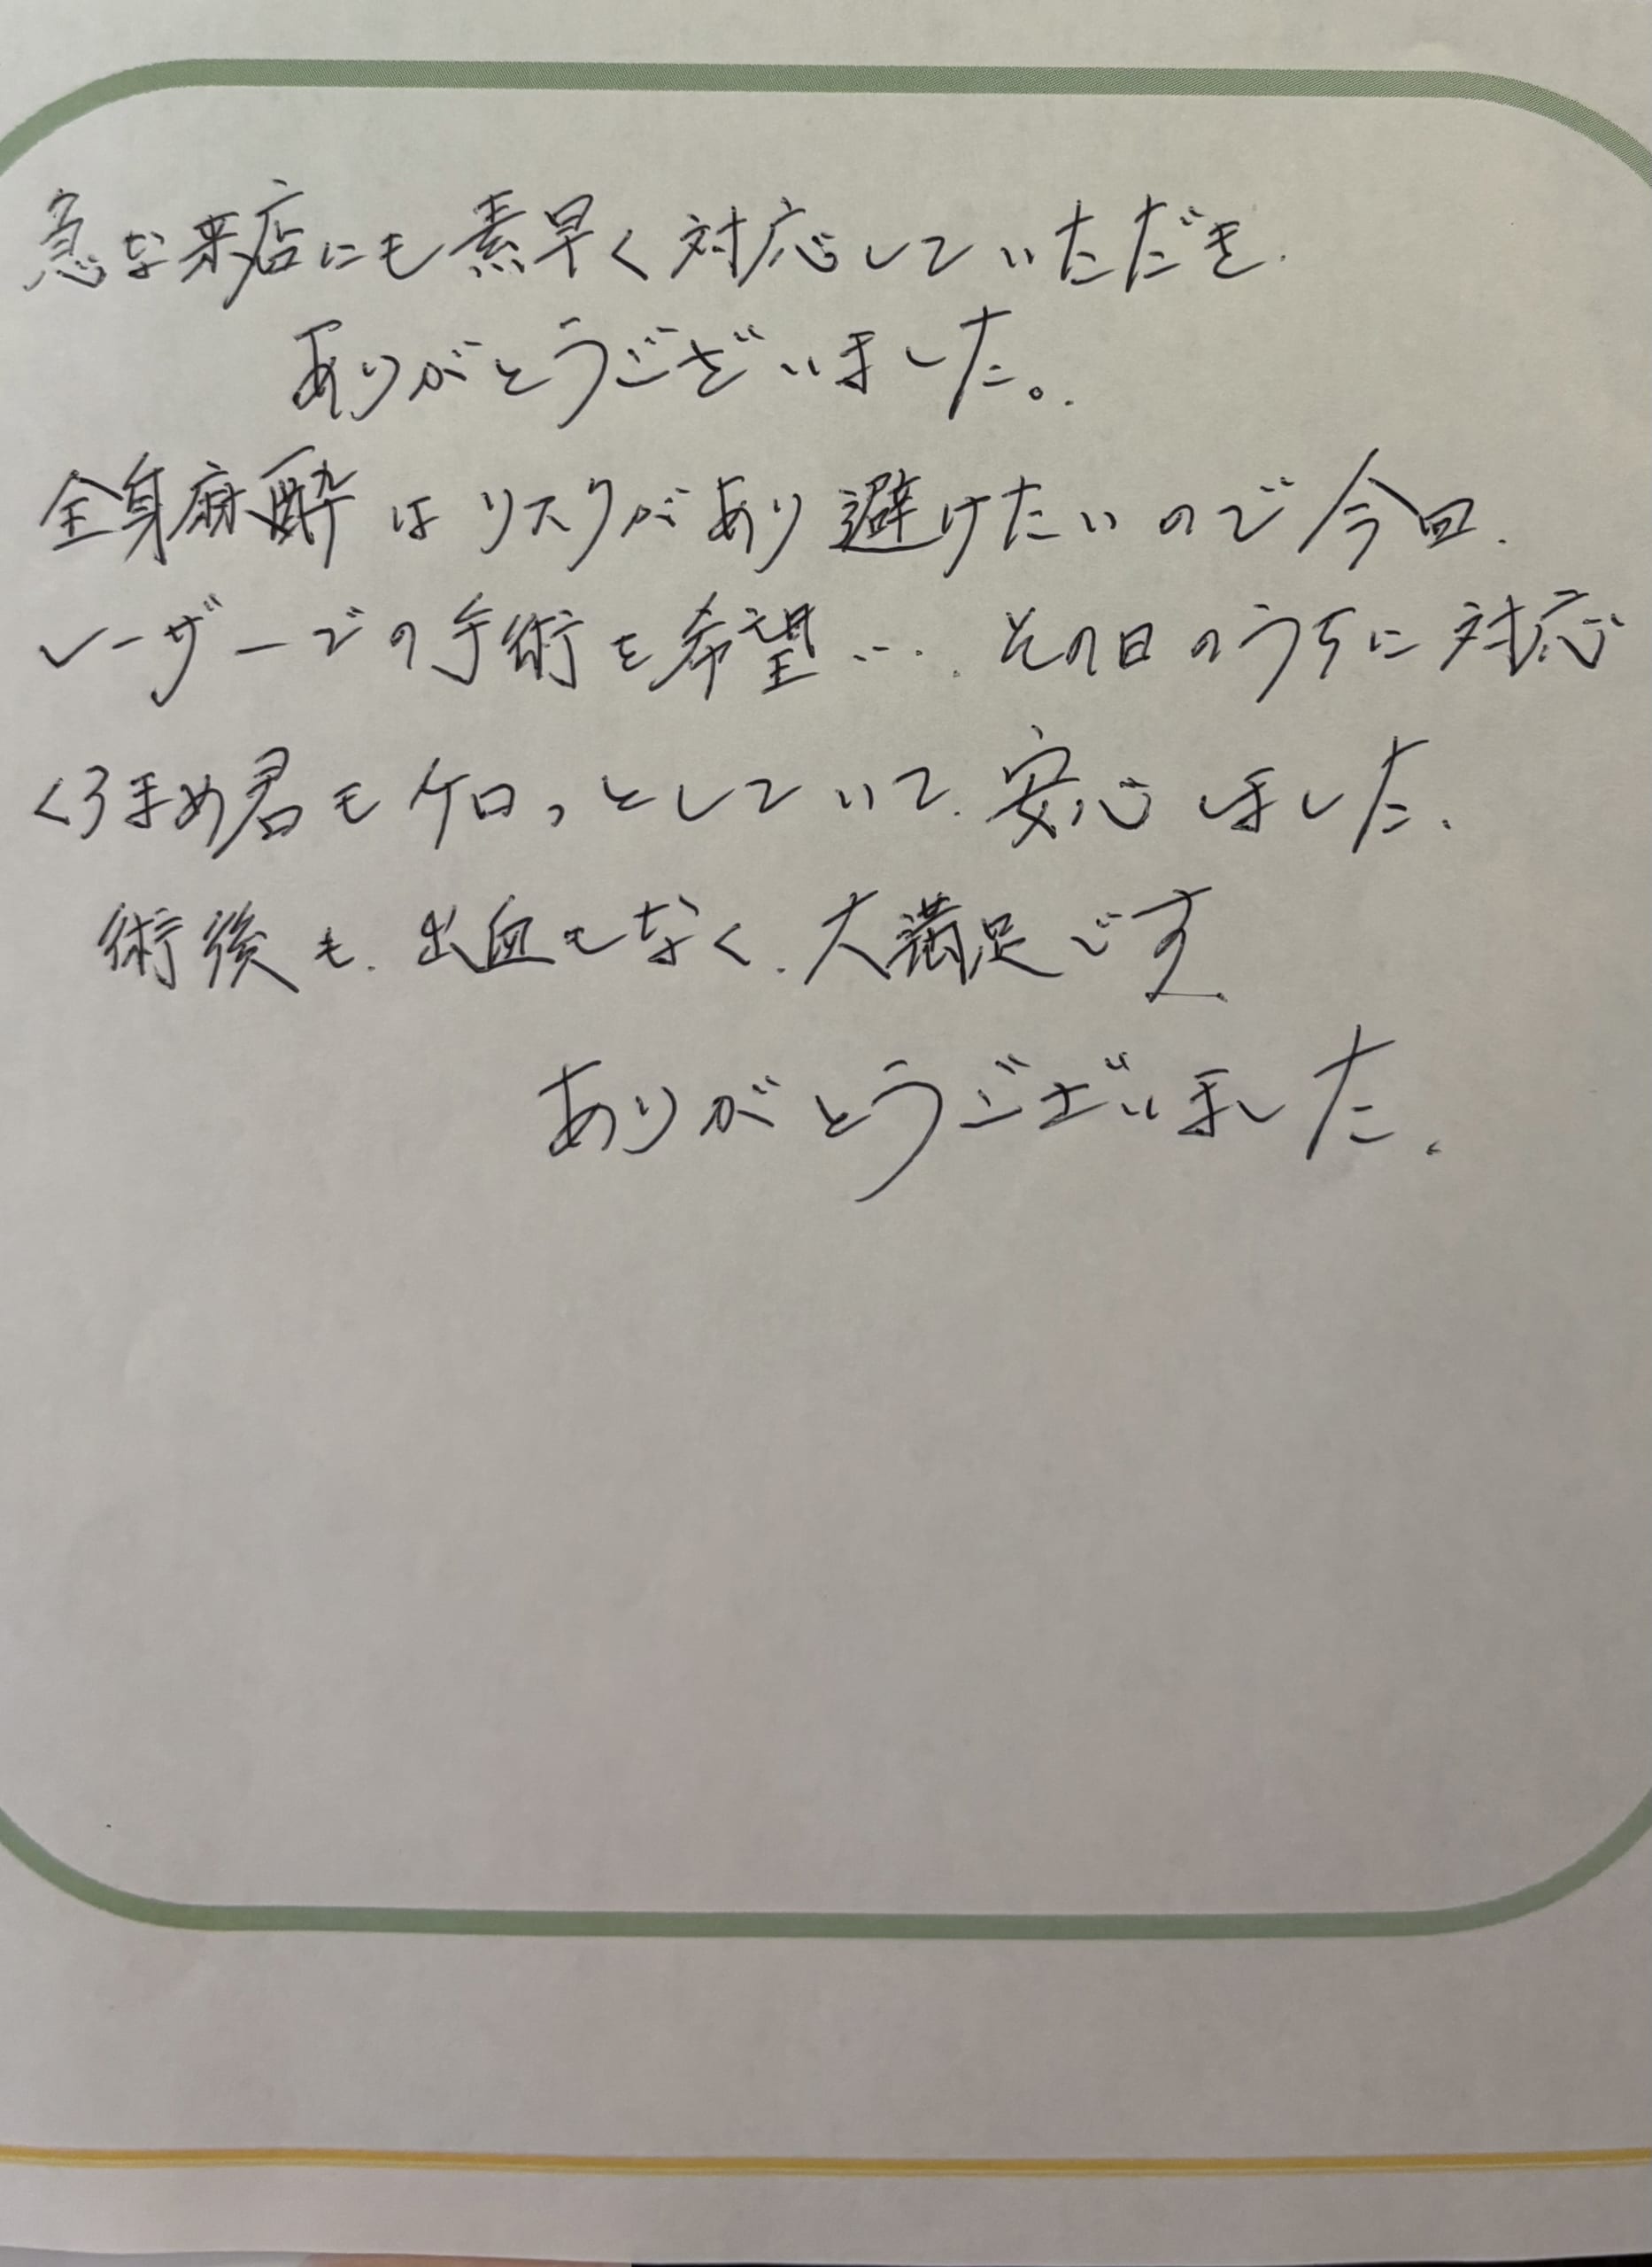 急な来店にも素早く対応していただき、
ありがとうございました。
全身麻酔はリスクがあり避けたいので今回、
レーザーでの手術を希望…。その日のうちに対応
くろまめ君もケロっとしていて、安心しました。
術後も、出血もなく、大満足です。
ありがとうございました。